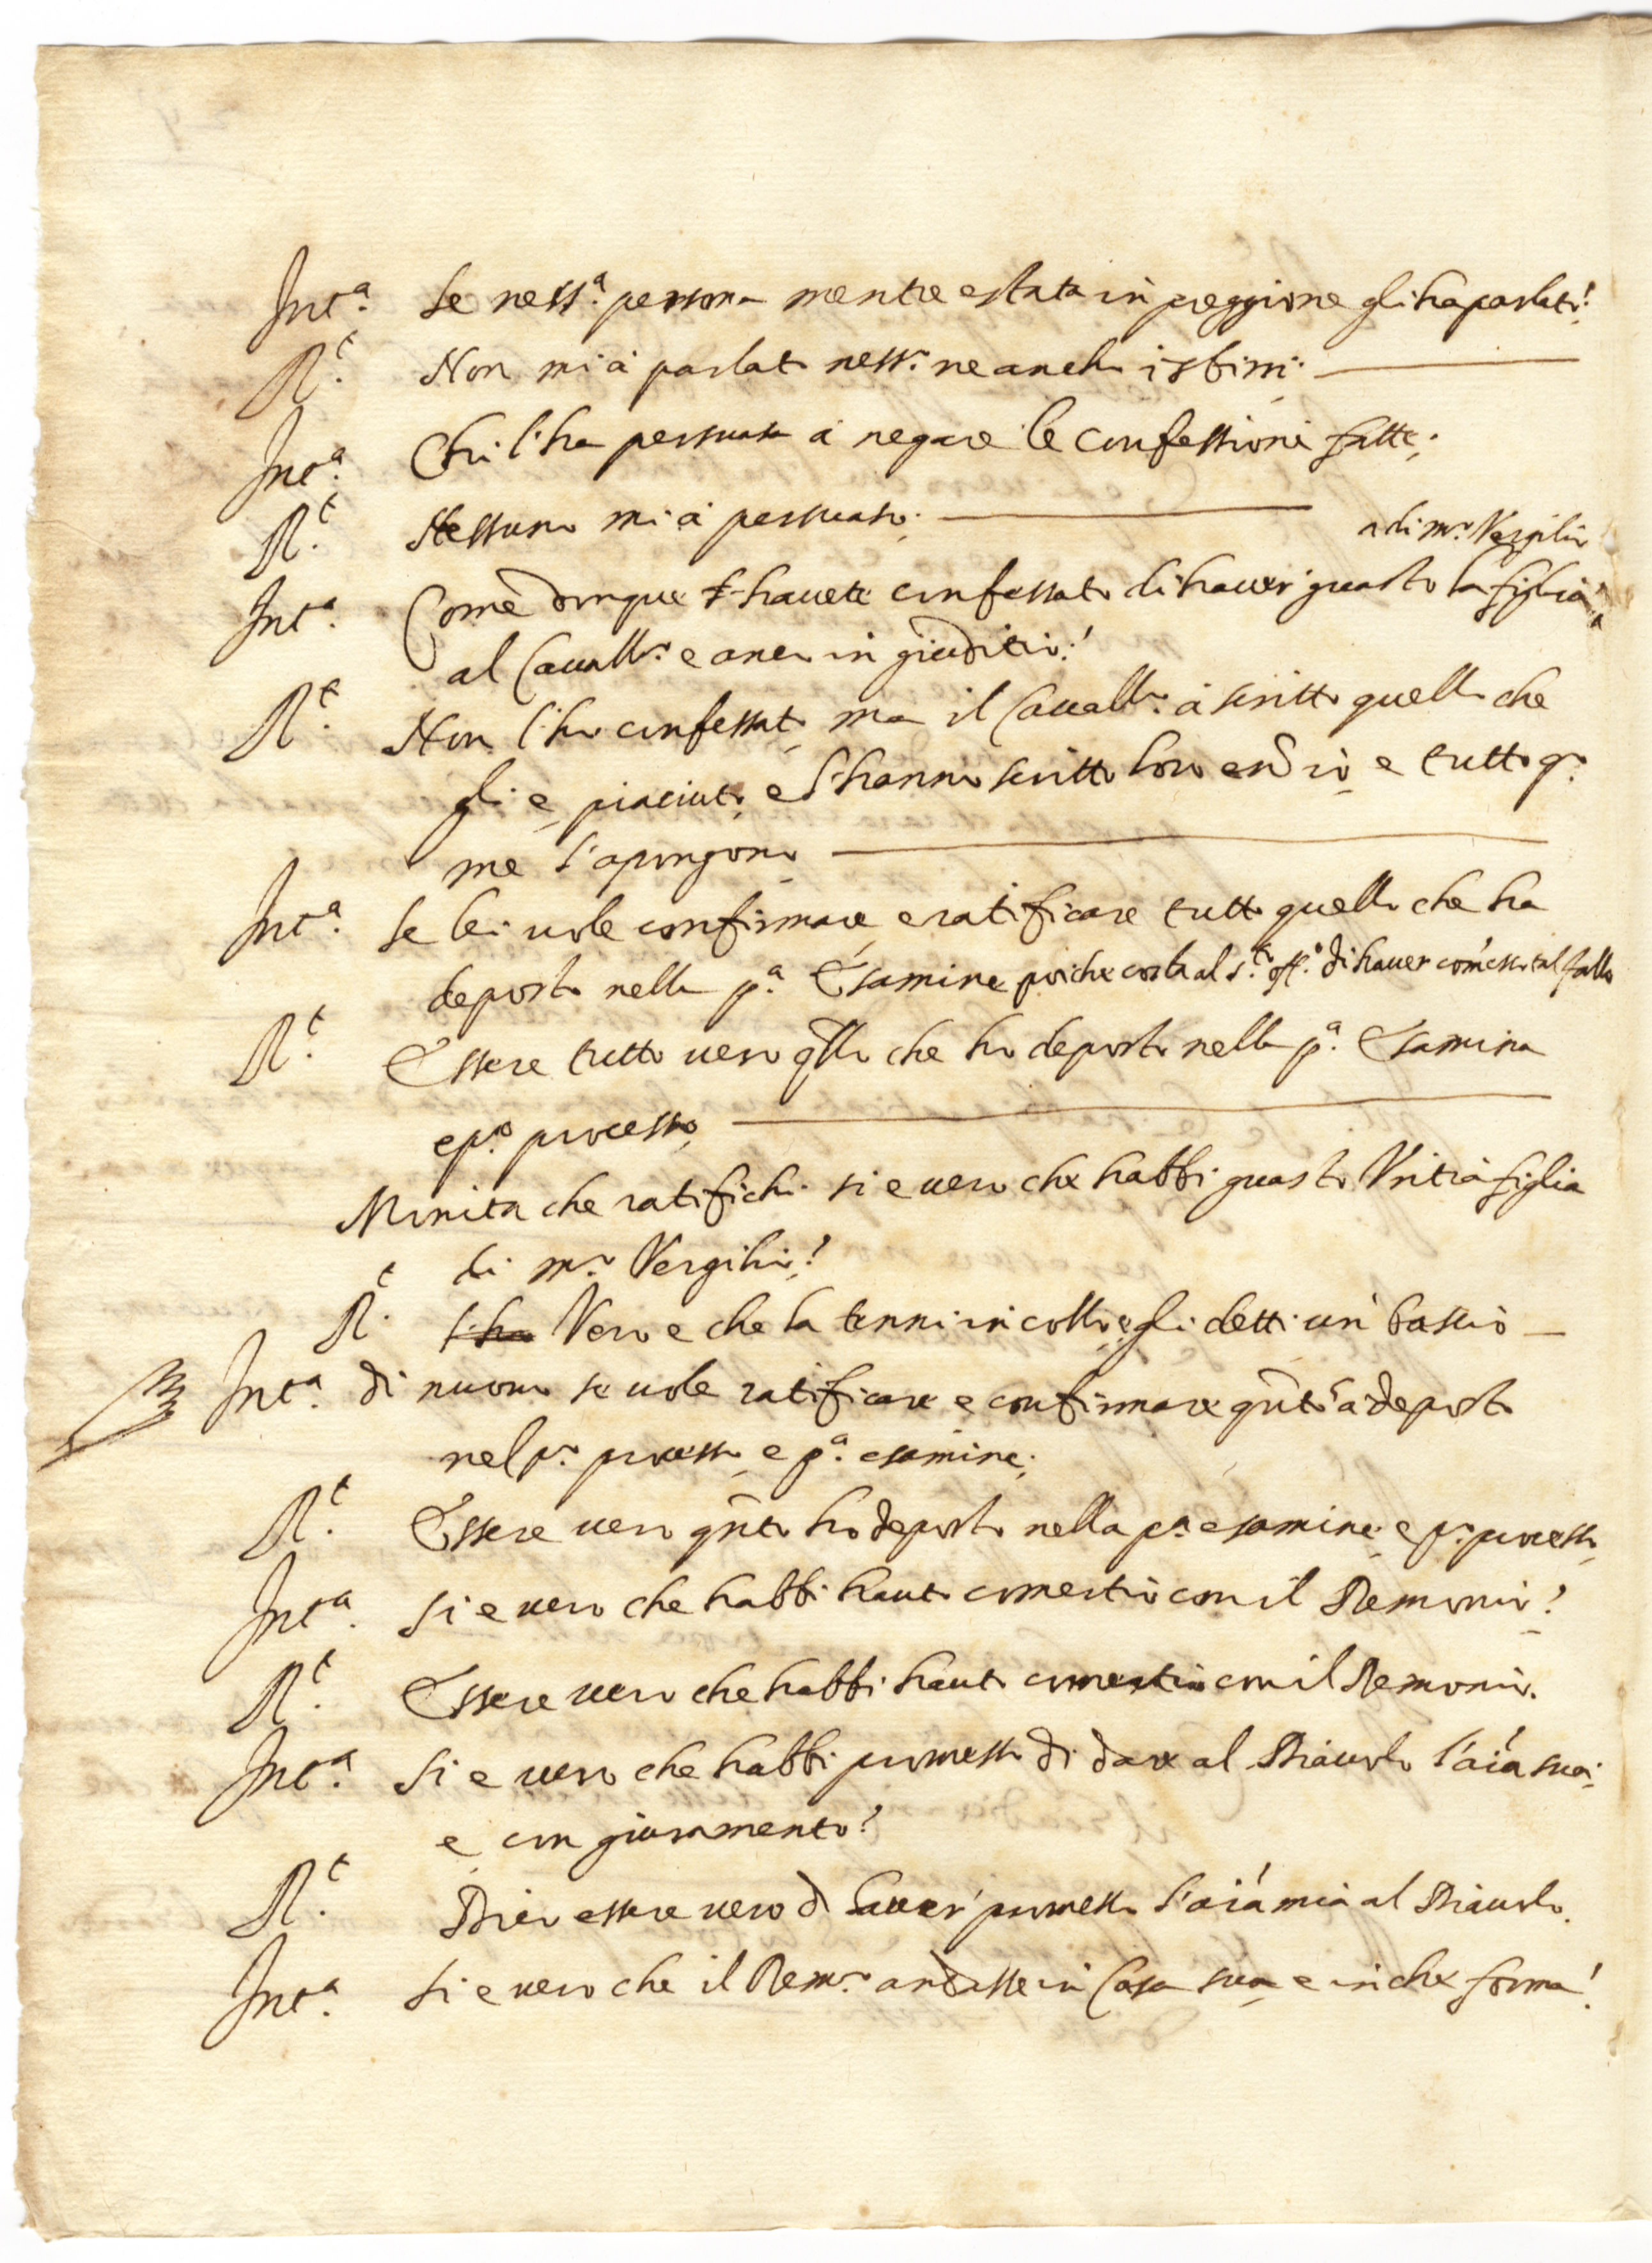 Int.ª Se ness.ª persona mentre e stata in preggione gli ha parlato?
R.t Non mi à parlato ness.o ne anche i sbirri.
Int.ª Chi l'ha persuasa à negare le confessioni fatte;
R.t Nessuno mi à persuaso.
a di m.o Vergilio
Int.ª Come donque l'havete confessato di haver guasto la figlia
al Cavall.o e anco in giuditio?
R.t Non l'ho confessato ma il Cavall.o à scritto quello che
gli e piaciuto e l'hanno scritto loro e nò io e tutto q.o
me l'apongono
Int.ª Se lei vole confirmare e ratificare tutto quello che ha
deposto nella p.ª Esamine poiche costa al s.to off.o di haver comesso tal fallo
R.t Essere tutto vero qllo che ho deposto nella p.ª Esamina
e p.o processo
Monita che ratifichi si e vero che habbi guasto Vritia figlia
di m.o Vergilio?
R.t l'ho Vero e che la tenni in collo e gli detti un bascio
Int.ª di nuovo se vole ratificare e confirmare qnto à deposto
nel p.o processo e p.ª esamine;
R.t Essere vero qnto ho deposto nella p.ª esamine e p.o processo
Int.ª Si e vero che habbi hauto comertio con il Demonio?
R.t Essere vero che habbi hauto comertio con il Demonio.
Int.ª Si e vero che habbi promesso di dare al Diavolo l'aīa sua;
e con giuramento?
R.t Dico essere vero d haver promesso l'aīa mia al Diavolo.
Int.ª Si e vero che il Dem.o andasse in Casa sua e in che forma?